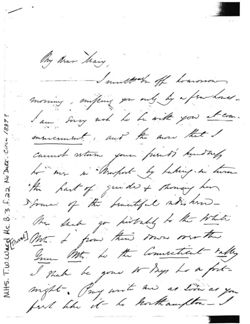 My dear Mary,
I must be off tomorrow
morning, missing you only by a few hours.
I am sorry not to be with you at com-
mencement, and the more that I
cannot return your friend's kindness
to me in Newport by taking in turn
the part of guide & showing her
some of the beautiful
We shall go probably to the White
Mts. & from there down over the
Green Mts to the Connecticut valley
I shall be gone 10 days to a fort-
night. Pray write me as soon as you
feel like it to Northampton - I
MHS. T.W. Ward
B.3. F.22 No Date. Circa